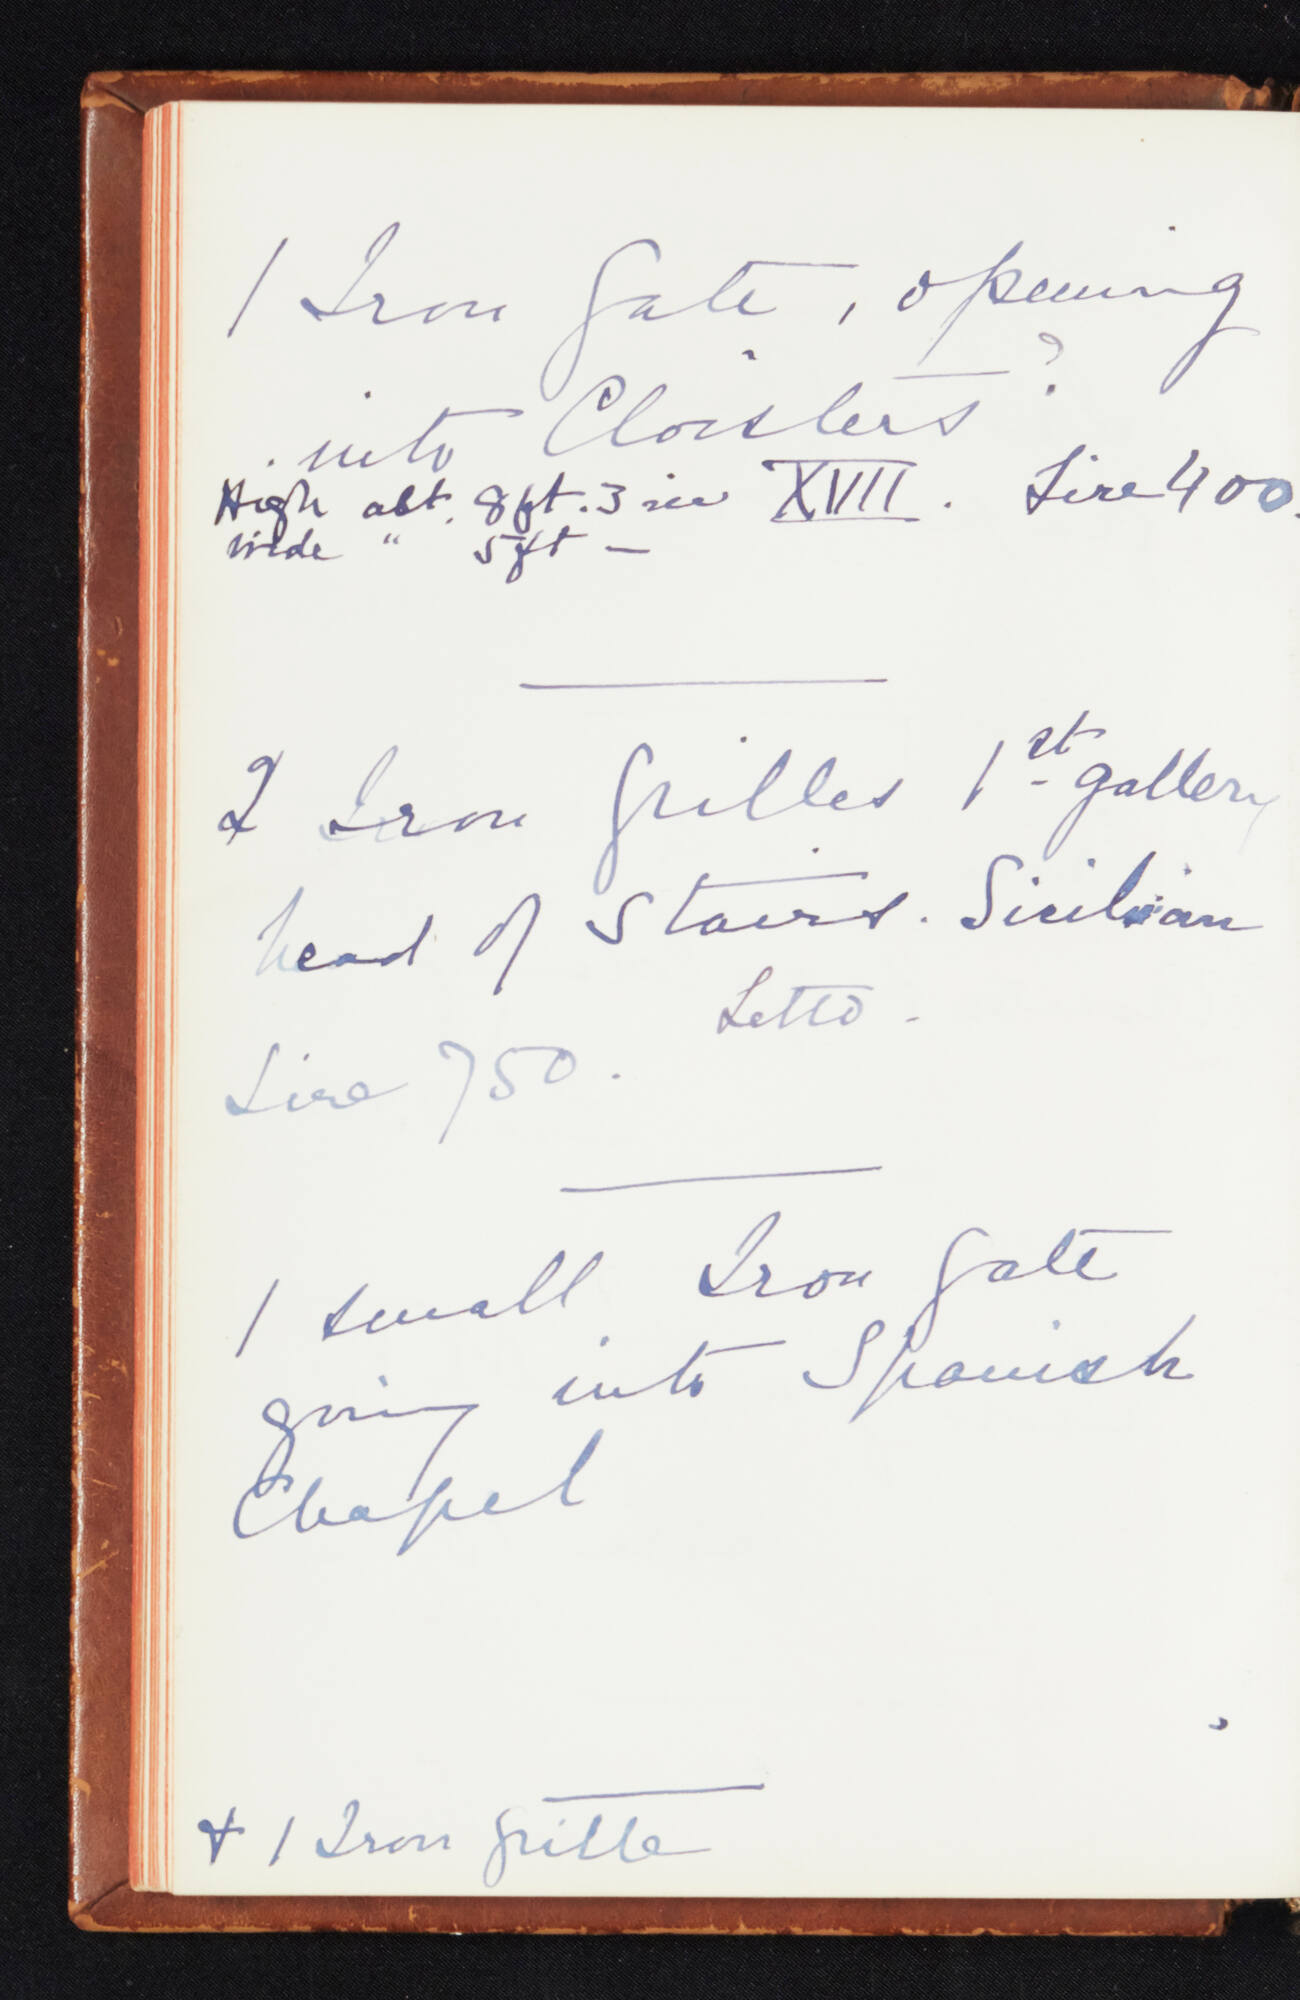 1 Iron Gate, opening
into Cloisters?
High abt. 8ft. 3 in XVII. Lire 400.
wide " 5ft —
2 Iron Grilles 1st gallery
head of Stairs. Sicilian
Letto -
Lire 750.
1 small Iron Gate
going into Spanish
Chapel
+ 1 Iron Grille